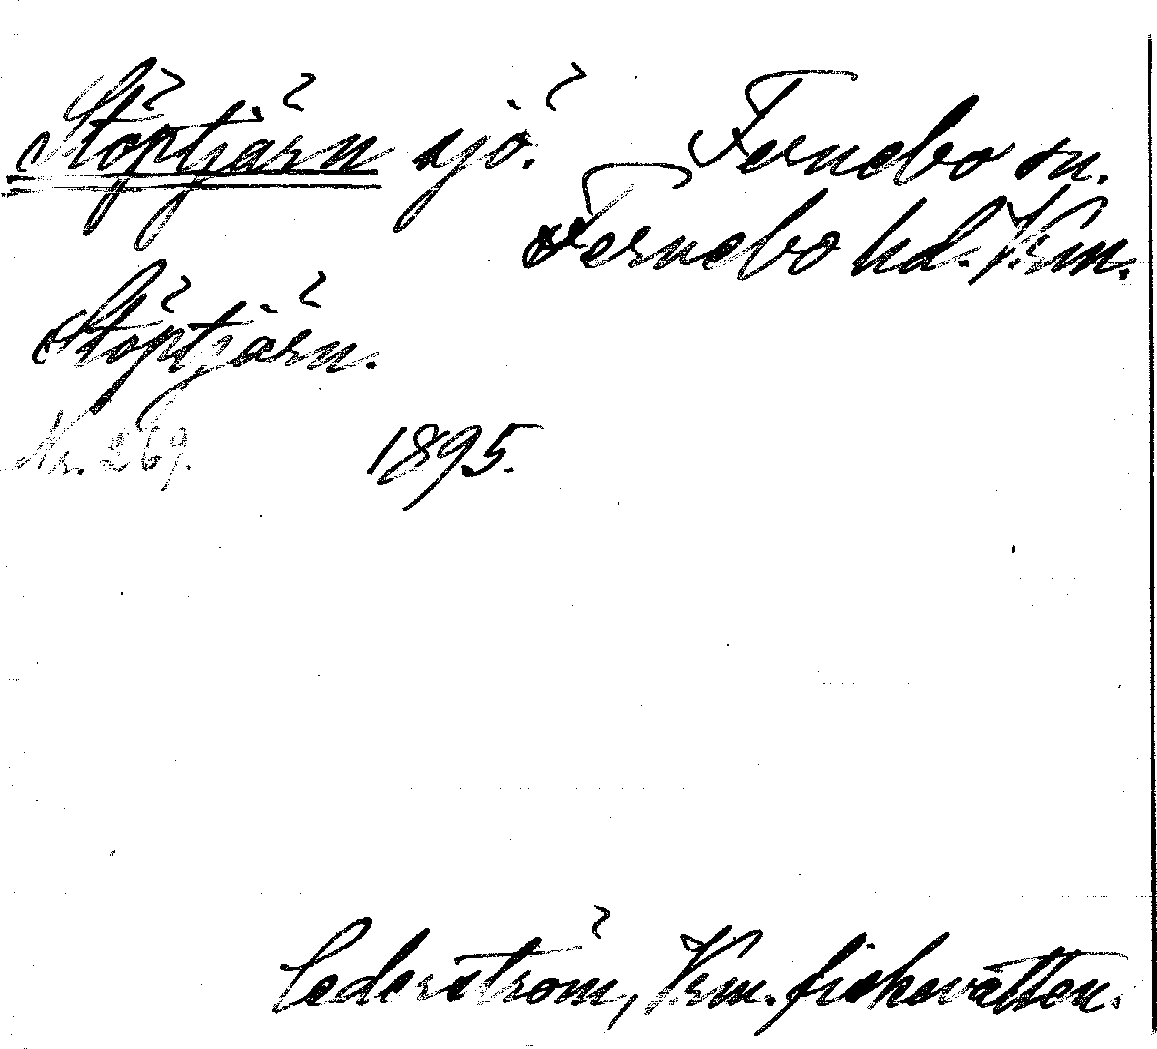 Stöptjärn sjö. Fernebo sn.
Fernebo hd. Vrm.
Stöptjärn.
Nr. 269. 1895.
Cederström, Vrm. fiskevatten.